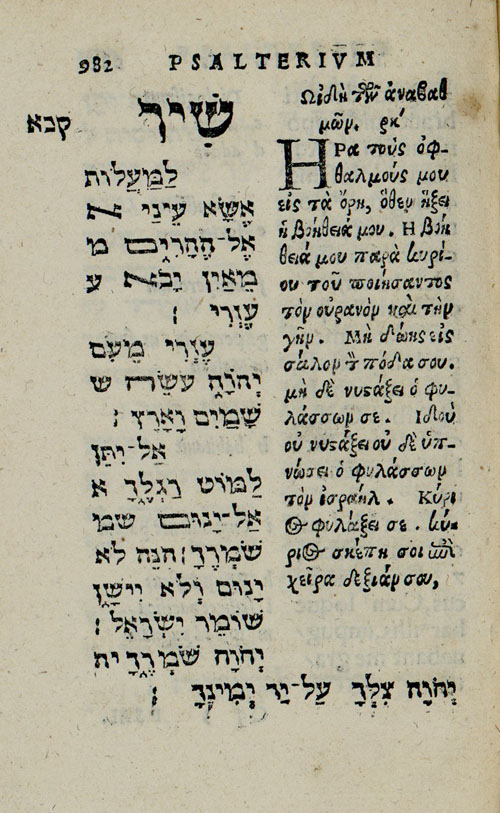 982 PSALTERIVM
קכא שִׁיר
לַמַּעֲלוֹת
אֶשָּׂא עֵינַי א
אֶל־הֶהָרִים מ
מֵאַיִן יָבֹא ע
עֶזְרִי ׃
עֶזְרִי מֵעִם
יְהוָֹה עֹשֵׂה ש
שָׁמַיִם וָאָרֶץ ׃
אַל־יִתֵּן
לַמּוֹט רַגְלֶךָ א
אַל־יָנוּם שמ
שֹׁמְרֶךָ ׃ הִנֵּה לֹא
יָנוּם וְלֹא יִישָׁן
שׁוֹמֵר יִשְׂרָאֵל ׃
יְהוָֹה שֹׁמְרֶךָ יה
יְהוָֹה צִלְּךָ עַל־יַד יְמִינֶךָ ׃
Ωιδὴ τῶν ἀναβαθ
μῶν. ρκ'
ΗΡα τοὺς ὀφ-
θαλμούς μου
εἰς τὰ ὄρη, ὅθεν ἥξει
ἡ βοήθειά μου. Η βοή
θειά μου παρὰ κυρί-
ου τοῦ ποιήσαντος
τὸν οὐρανὸν καὶ τὴν
γῆν. Μὴ δώης εἰς
σάλον τ̀ πόδα σου.
μὴ δὲ νυστάξει ὁ φυ-
λάσσων σε. Ιδοὺ
οὐ νυστάξει οὐ δὲ ὑπ-
νώσει ὁ φυλάσσων
τὸν ἰσραήλ. Κύρι
ος φυλάξει σε. κύ-
ριος σκέπη σοι ἐπὶ
χεῖρα δεξιάν σου,